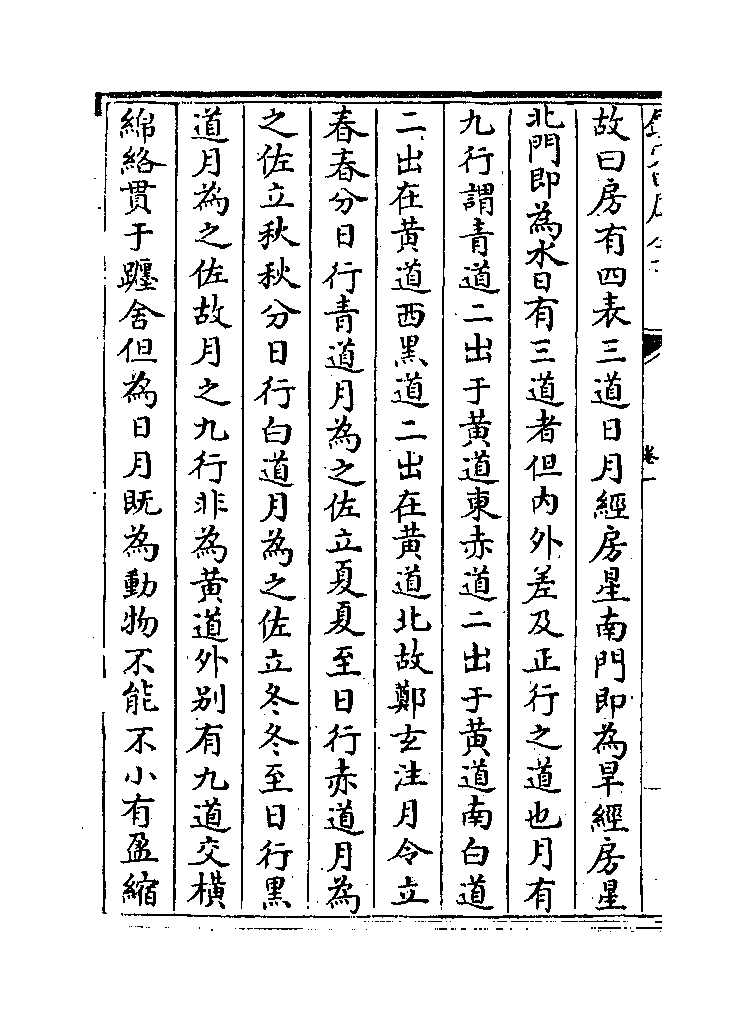 故曰房有四表三道日月經房星南門即為旱經房星
北門即為水日有三道者但内外差及正行之道也月有
九行謂青道二出于黃道東赤道二出于黃道南白道
二出在黃道西黑道二出在黃道北故鄭玄注月令立
春春分日行青道月為之佐立夏夏至日行赤道月為
之佐立秋秋分日行白道月為之佐立冬冬至日行黑
道月為之佐故月之九行非為黃道外别有九道交橫
綿絡貫于躔舍但為日月既為動物不能不小有盈縮